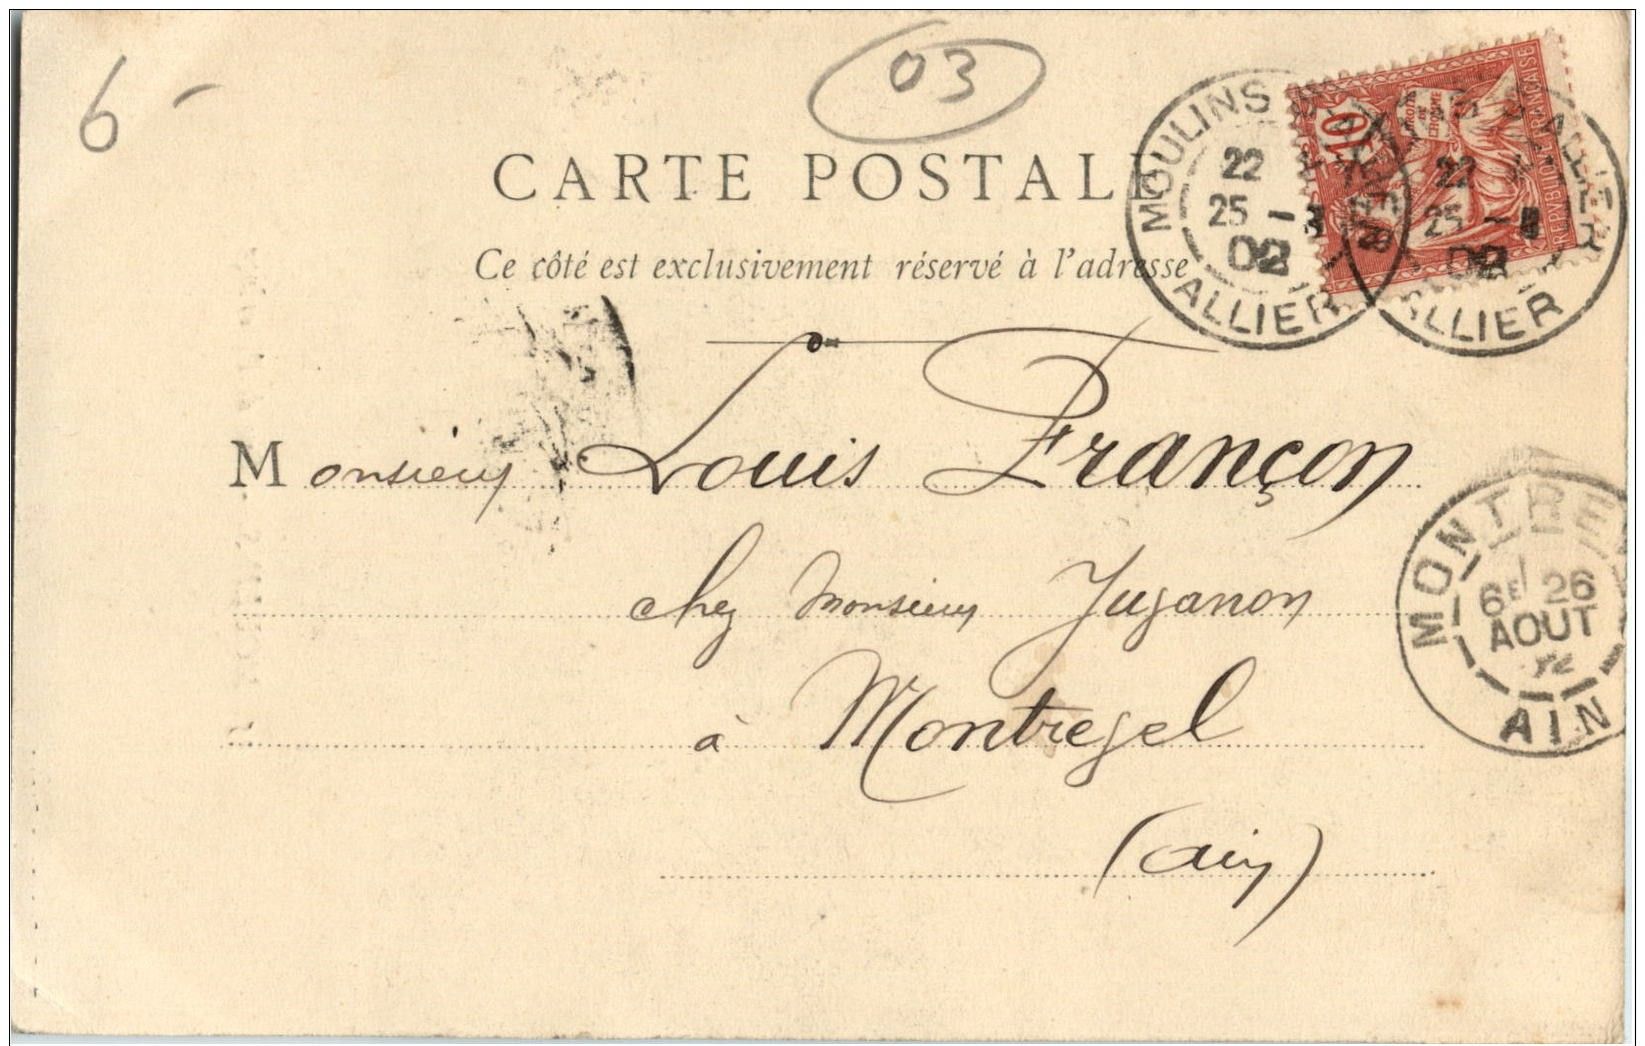 6-
03
CARTE POSTALE
Ce côté est exclusivement réservé à l'adresse
10
DROITS DE L'HOMME
REPUBLIQUE FRANÇAISE
MOULINS
22
25 - 8
02
ALLIER
22
25 - 8
02
ALLIER
Monsieur Louis Françon
chez Monsieur Juganon
à Montregel
(ain)
MONTRE
6E 26
AOUT
AIN